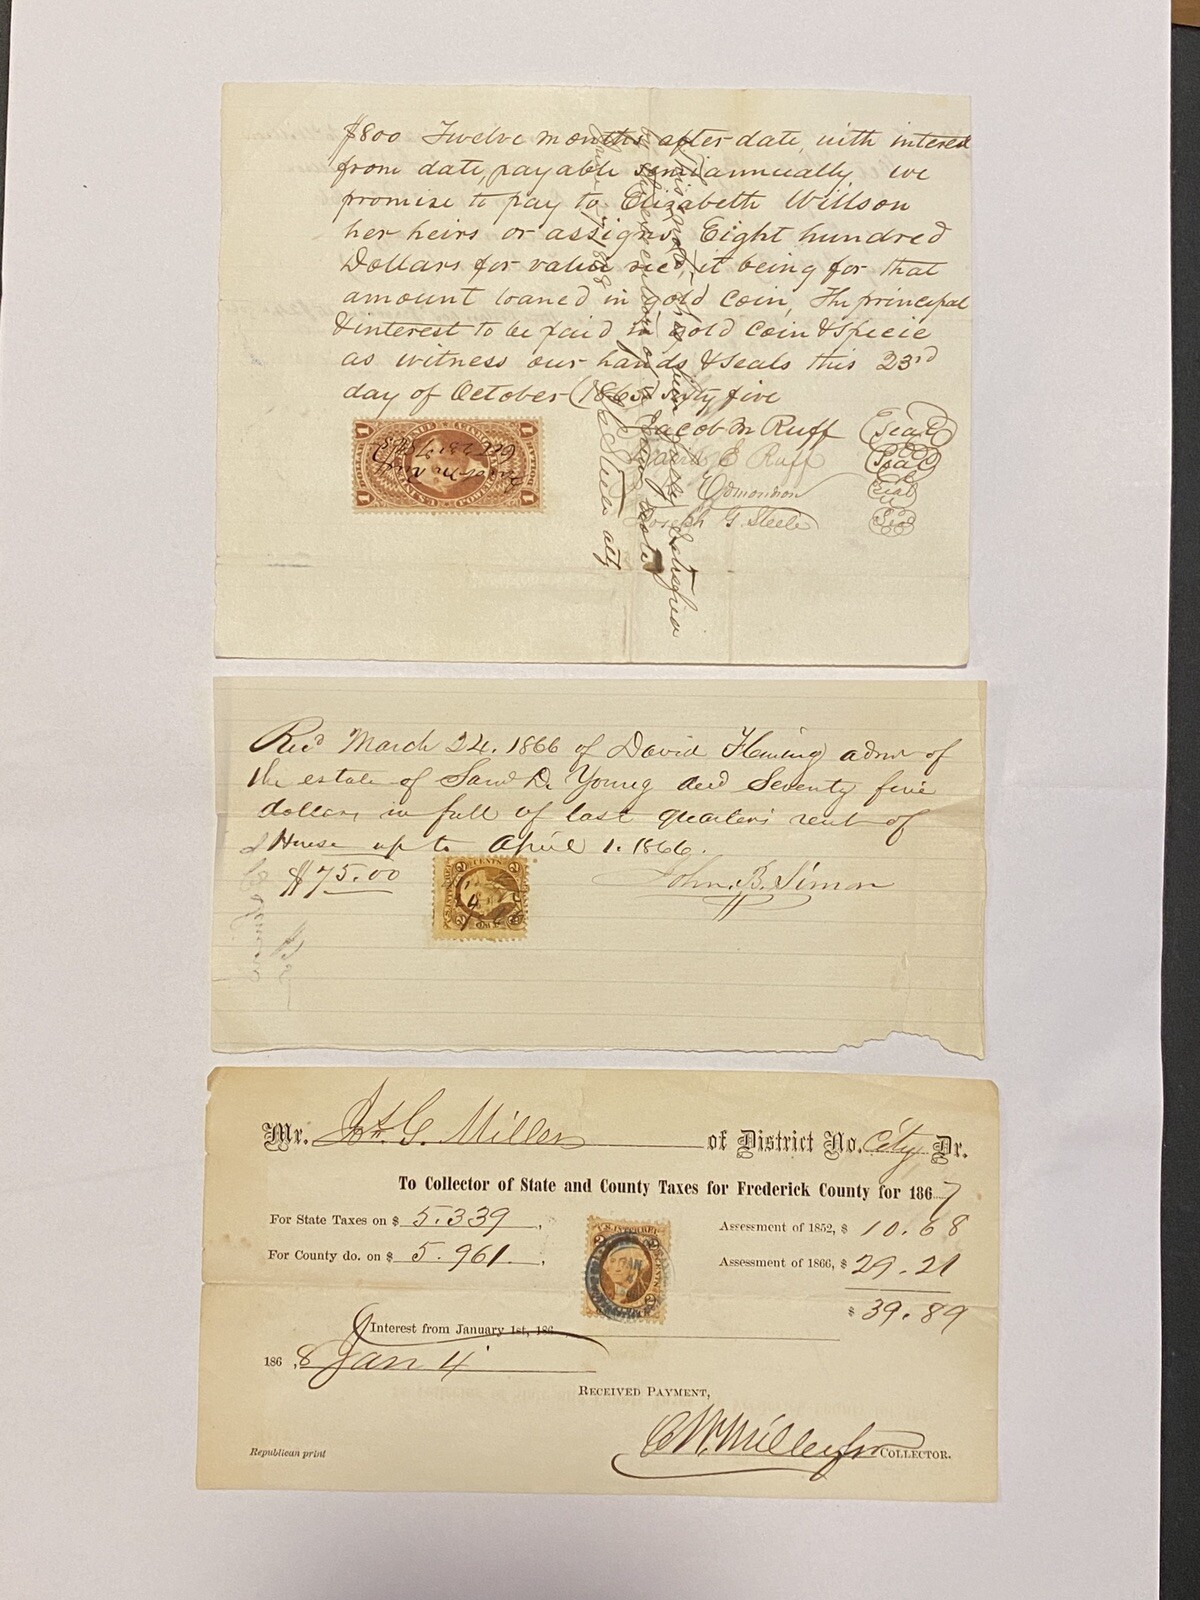 $800 Twelve months after date, with interest
from date, payable semiannually we
promise to pay to Elizabeth Willson
her heirs or assigns, Eight hundred
Dollars for value recd, it being for that
amount loaned in gold coin, The principal
& interest to be paid in gold coin & specie
as witness our hands & seals this 23rd
day of October (1865) sixty five
Jacob M Ruff (Seal)
E Ruff (Seal)
Edmondson Seal
Joseph G. Steele Seal
This note has been fully satisfied
Steele atty
1 DOLLAR
1 DOLLAR
Oct 23rd
Jacob M Ruff
Recd March 24. 1866 of David Fleming admr of
the estate of Saml D. Young decd Seventy five
dollars in full of last quarters rent of
House up to April 1. 1866.
$75.00 John. B. Simon
2 CENTS
U.S. INTER. REV.
Mr. G. Miller of District No. City Dr.
To Collector of State and County Taxes for Frederick County for 1867
For State Taxes on $ 5.339 Assessment of 1852, $ 10.68
For County do. on $ 5.961 Assessment of 1866, $ 29.21
$ 39.89
Interest from January 1st, 186
1868, Jan 4
RECEIVED PAYMENT,
C W. Miller COLLECTOR.
Republican print
U.S. INTER. REV.
2 CENTS
JAN